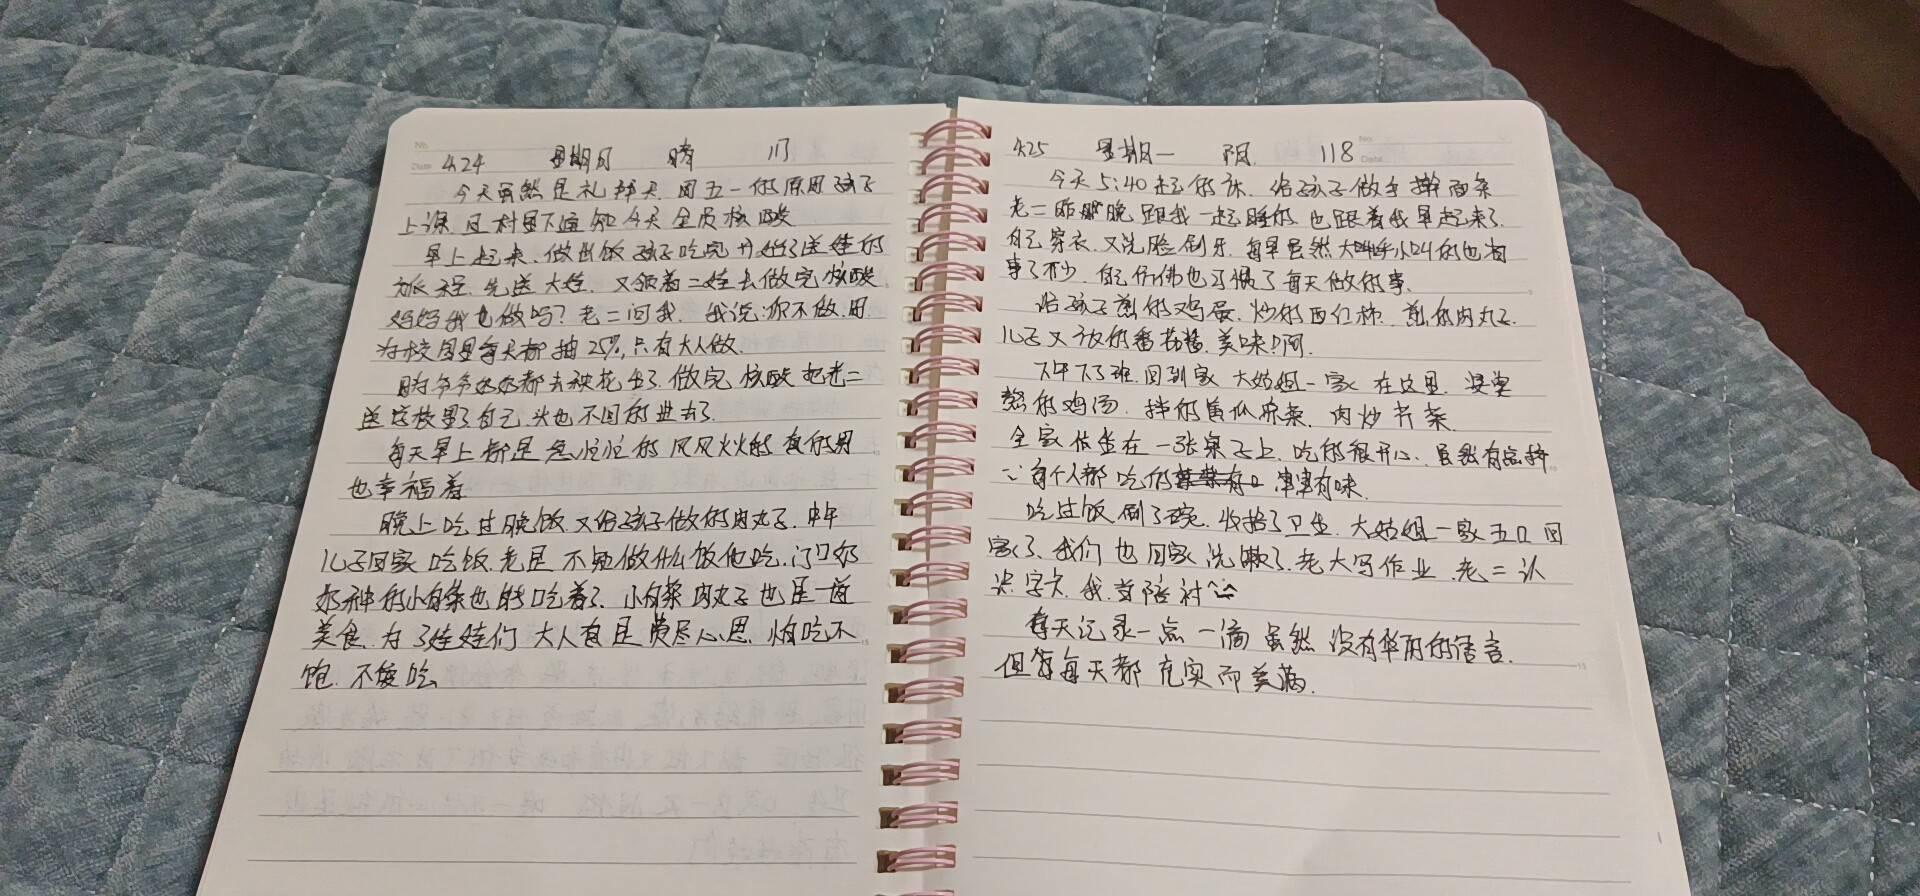 No.
Date 4.24 星期日 晴 117
今天虽然是礼拜天 因五一的原因孩子
上课 且村里下通知今天全员核酸
早上起来、做出饭 孩子吃完 开始了送娃的
旅程. 先送大娃、又领着二娃去做完核酸
妈妈我也做吗？老二问我. 我说:你不做.因
为校园里每天都抽25%,只有大人做.
爷爷奶奶都去种花生了. 做完核酸把老二
送学校里了自己头也不回的进去了.
每天早上都是急忙忙的风风火火的
也幸福着
晚上吃过晚饭 又给孩子做的肉丸子. 中午
儿子回家吃饭 老是不知做什么饭他吃. 门口奶
奶种的小白菜也能吃着了. 小白菜肉丸子也是一道
美食. 为了娃娃们 大人真是费尽心思. 怕吃不
饱. 不爱吃
4.25 星期一 阴. 118 No. Date
今天5:40起的床. 给孩子做手擀面条
老二昨晚跟我一起睡的 也跟着我早起来了.
自己穿衣. 又洗脸刷牙. 每早虽然大呼小叫的也省
事了不少. 自己仿佛也习惯了每天做的事.
给孩子煎的鸡蛋. 炒的西红柿. 煎的肉丸子.
儿子又放的番茄酱. 美味!啊.
下午下了班. 回到家 大姑姐一家在这里. 婆婆
熬的鸡汤. 拌的黄瓜凉菜. 肉炒芹菜.
全家依坐在一张桌子上. 吃的很开心. 虽然有点挤
每个人都吃的津津有味.
吃过饭刷了碗. 收拾了卫生. 大姑姐一家五口回
家了、我们也回家洗漱了. 老大写作业. 老二认
识字卡. 我当陪衬
每天记录一点一滴 虽然没有华丽的语言.
但每天都充实而美满.